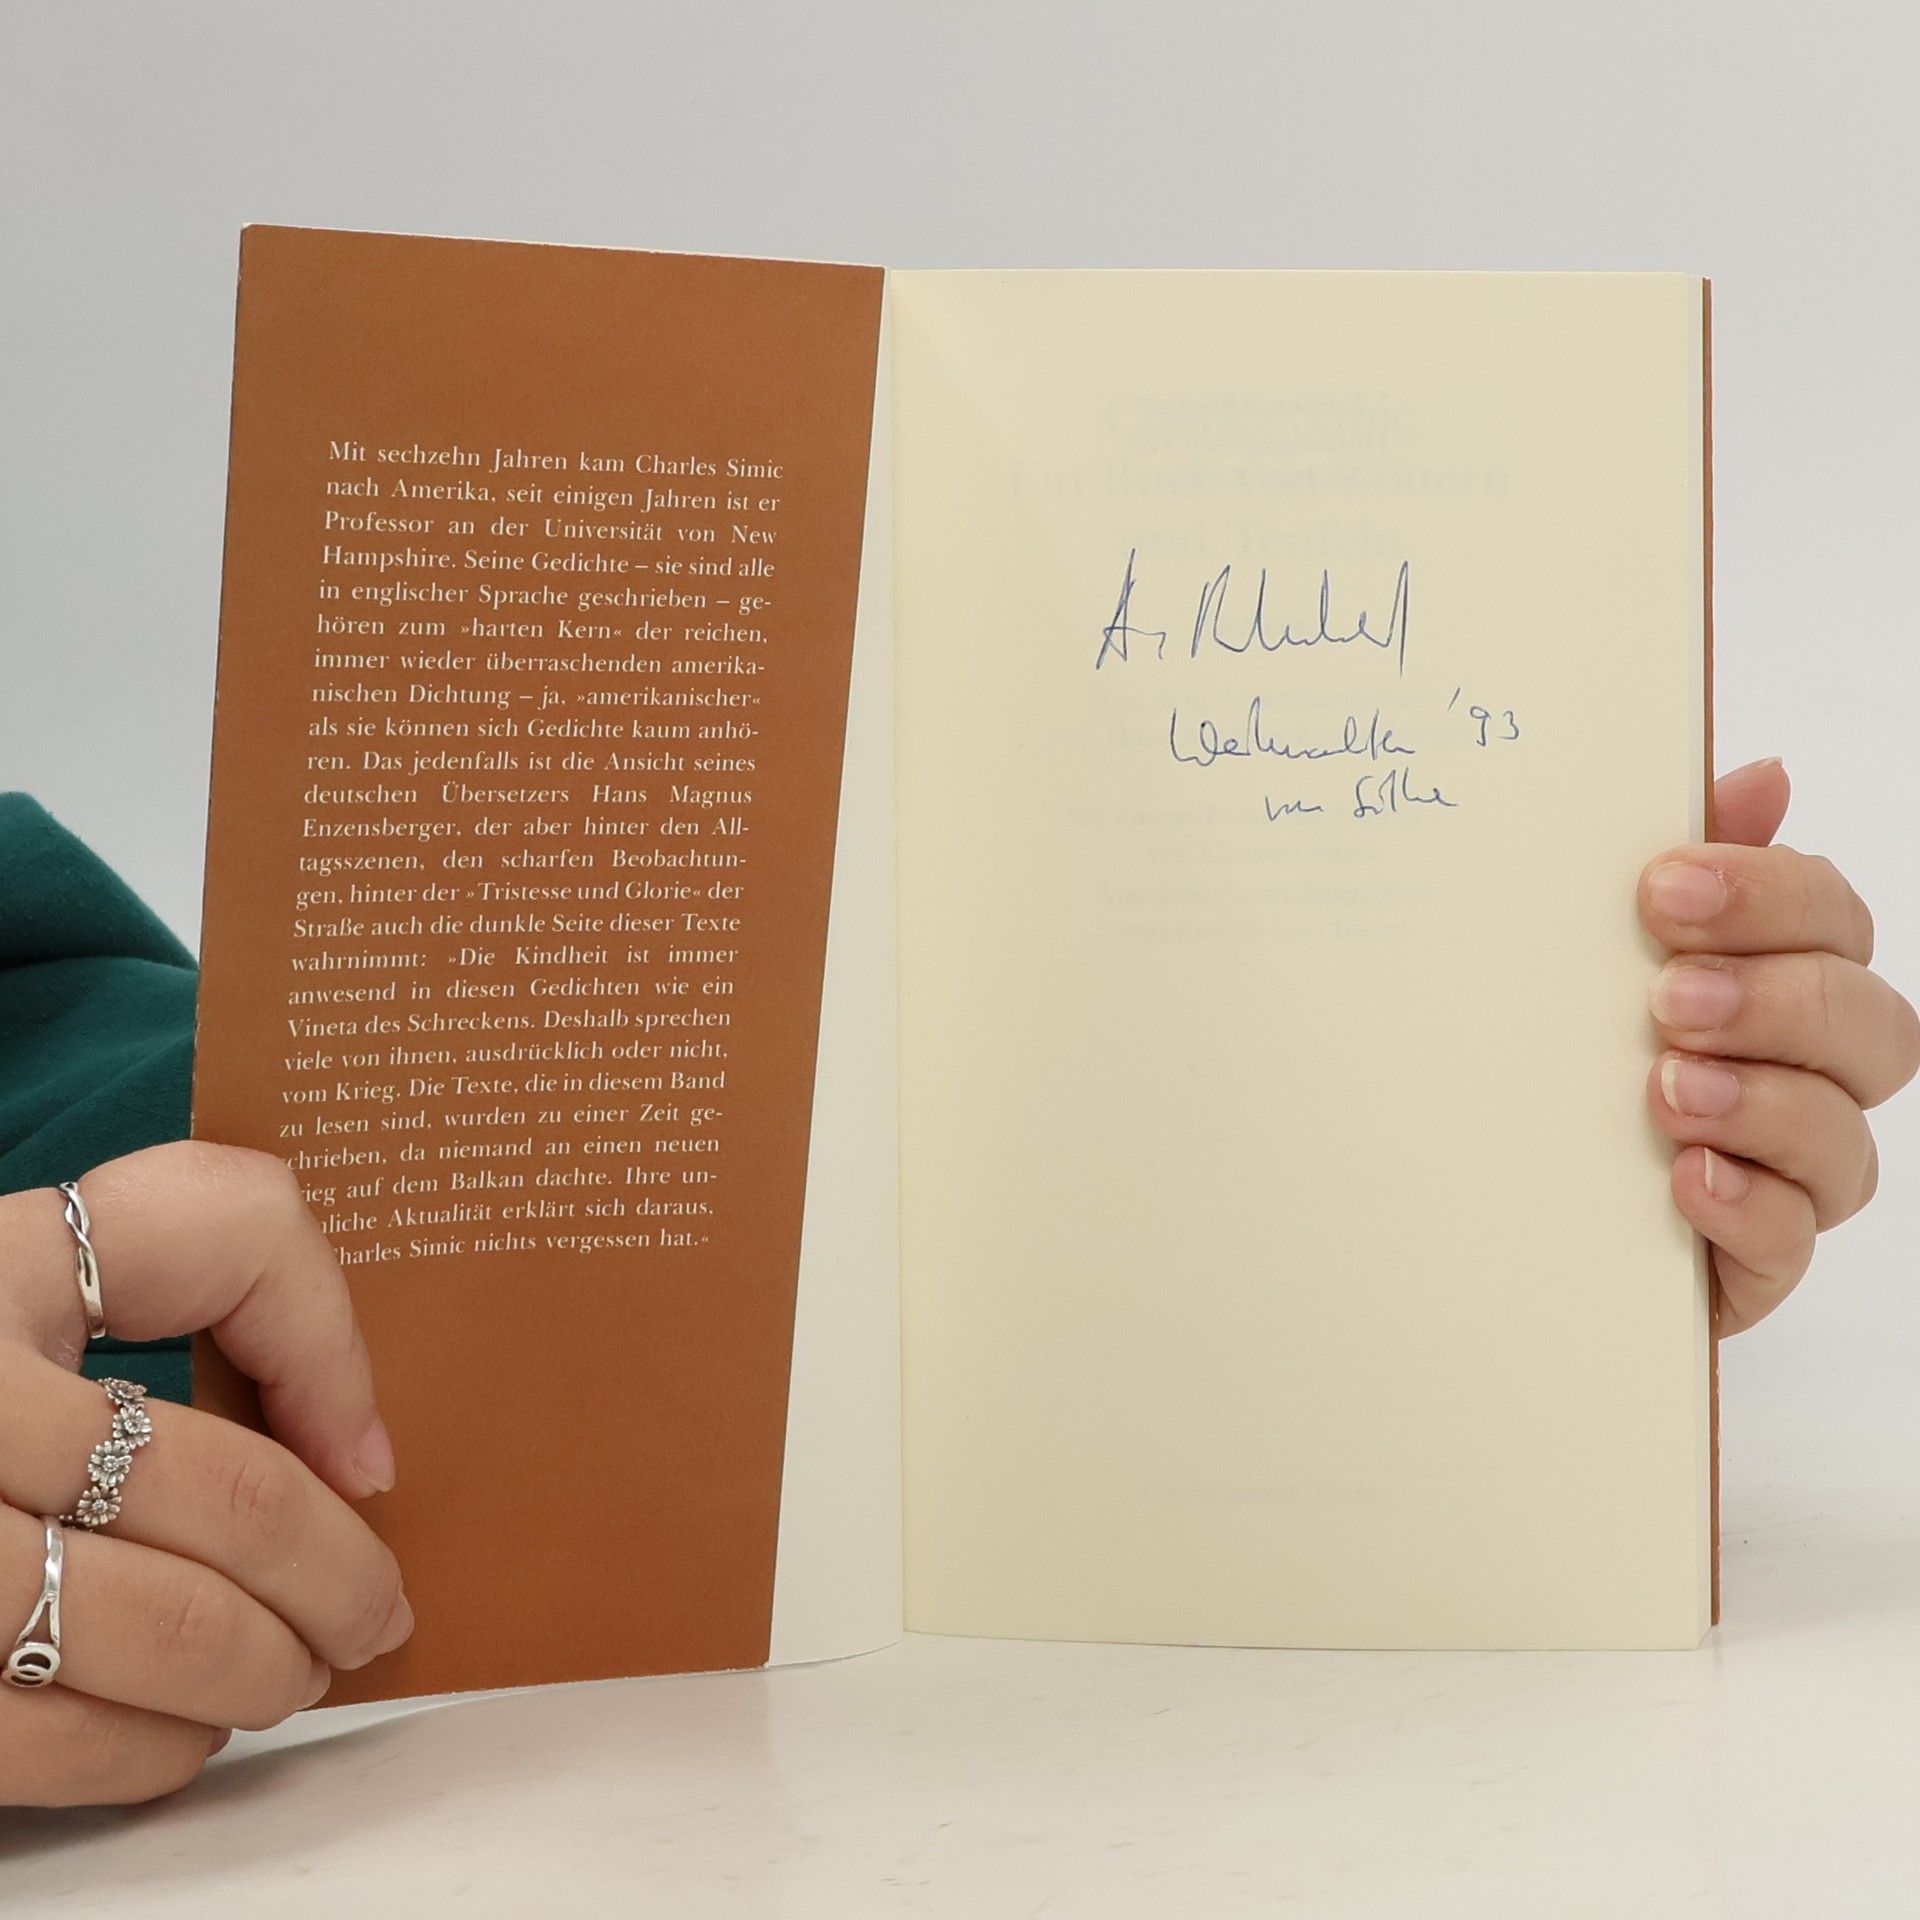 Mit sechzehn Jahren kam Charles Simic
nach Amerika, seit einigen Jahren ist er
Professor an der Universität von New
Hampshire. Seine Gedichte – sie sind alle
in englischer Sprache geschrieben – ge-
hören zum »harten Kern« der reichen,
immer wieder überraschenden amerika-
nischen Dichtung – ja, »amerikanischer«
als sie können sich Gedichte kaum anhö-
ren. Das jedenfalls ist die Ansicht seines
deutschen Übersetzers Hans Magnus
Enzensberger, der aber hinter den All-
tagsszenen, den scharfen Beobachtun-
gen, hinter der »Tristesse und Glorie« der
Straße auch die dunkle Seite dieser Texte
wahrnimmt: »Die Kindheit ist immer
anwesend in diesen Gedichten wie ein
Vineta des Schreckens. Deshalb sprechen
viele von ihnen, ausdrücklich oder nicht,
vom Krieg. Die Texte, die in diesem Band
zu lesen sind, wurden zu einer Zeit ge-
chrieben, da niemand an einen neuen
ieg auf dem Balkan dachte. Ihre un-
liche Aktualität erklärt sich daraus,
harles Simic nichts vergessen hat.«
Weihnachten '93
von Silke